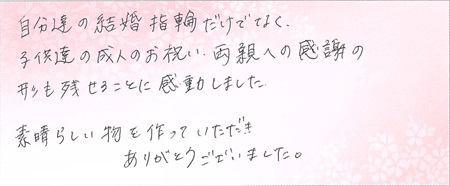 自分達の結婚指輪だけでなく、
子供達の成人のお祝い、両親への感謝の
形も残せることに感動しました。
素晴らしい物を作っていただき
ありがとうございました。